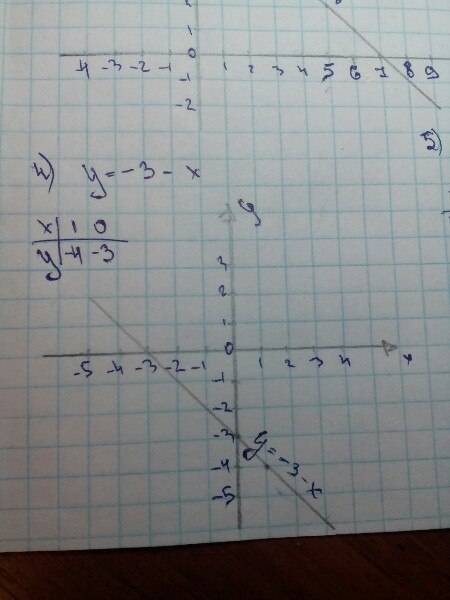 2
1
0
-4 -3 -2 -1 1 2 3 4 5 6 7 8 9
-1
-2
5)
4) y = -3 - x
y
x | 1 0
y | -4 -3
3
2
1
0
-5 -4 -3 -2 -1 1 2 3 4 x
-1
-2
-3
y = -3 - x
-4
-5